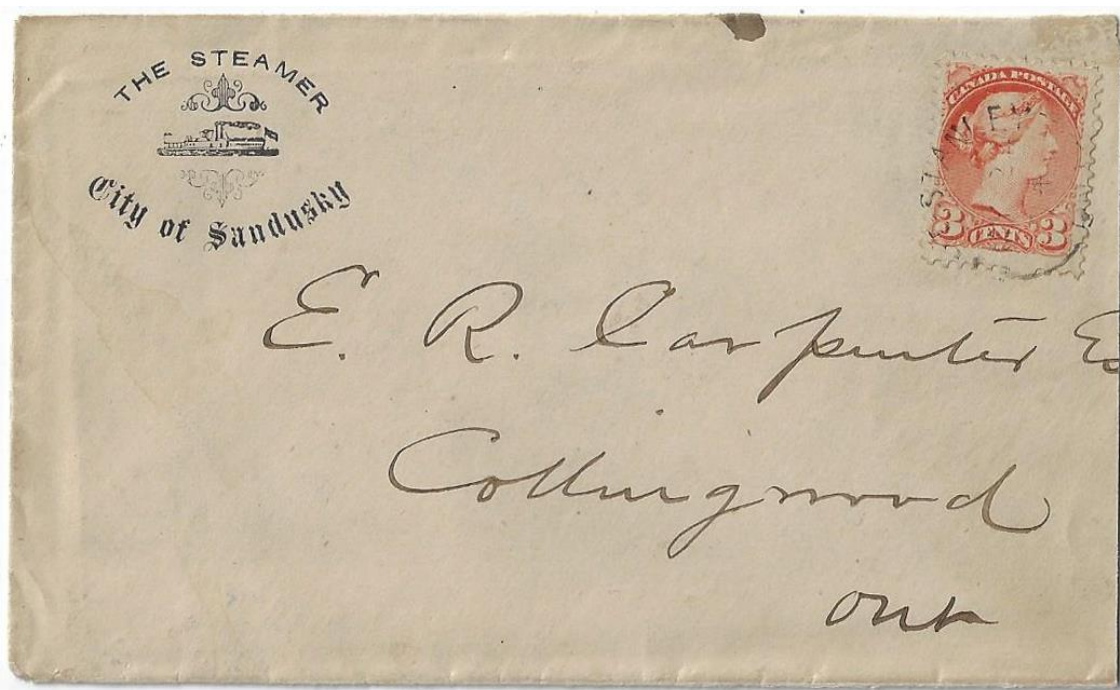 THE STEAMER
City of Sandusky
CANADA POSTAGE
3 CENTS 3
E. R. Carpenter Es
Collingwood
Ont